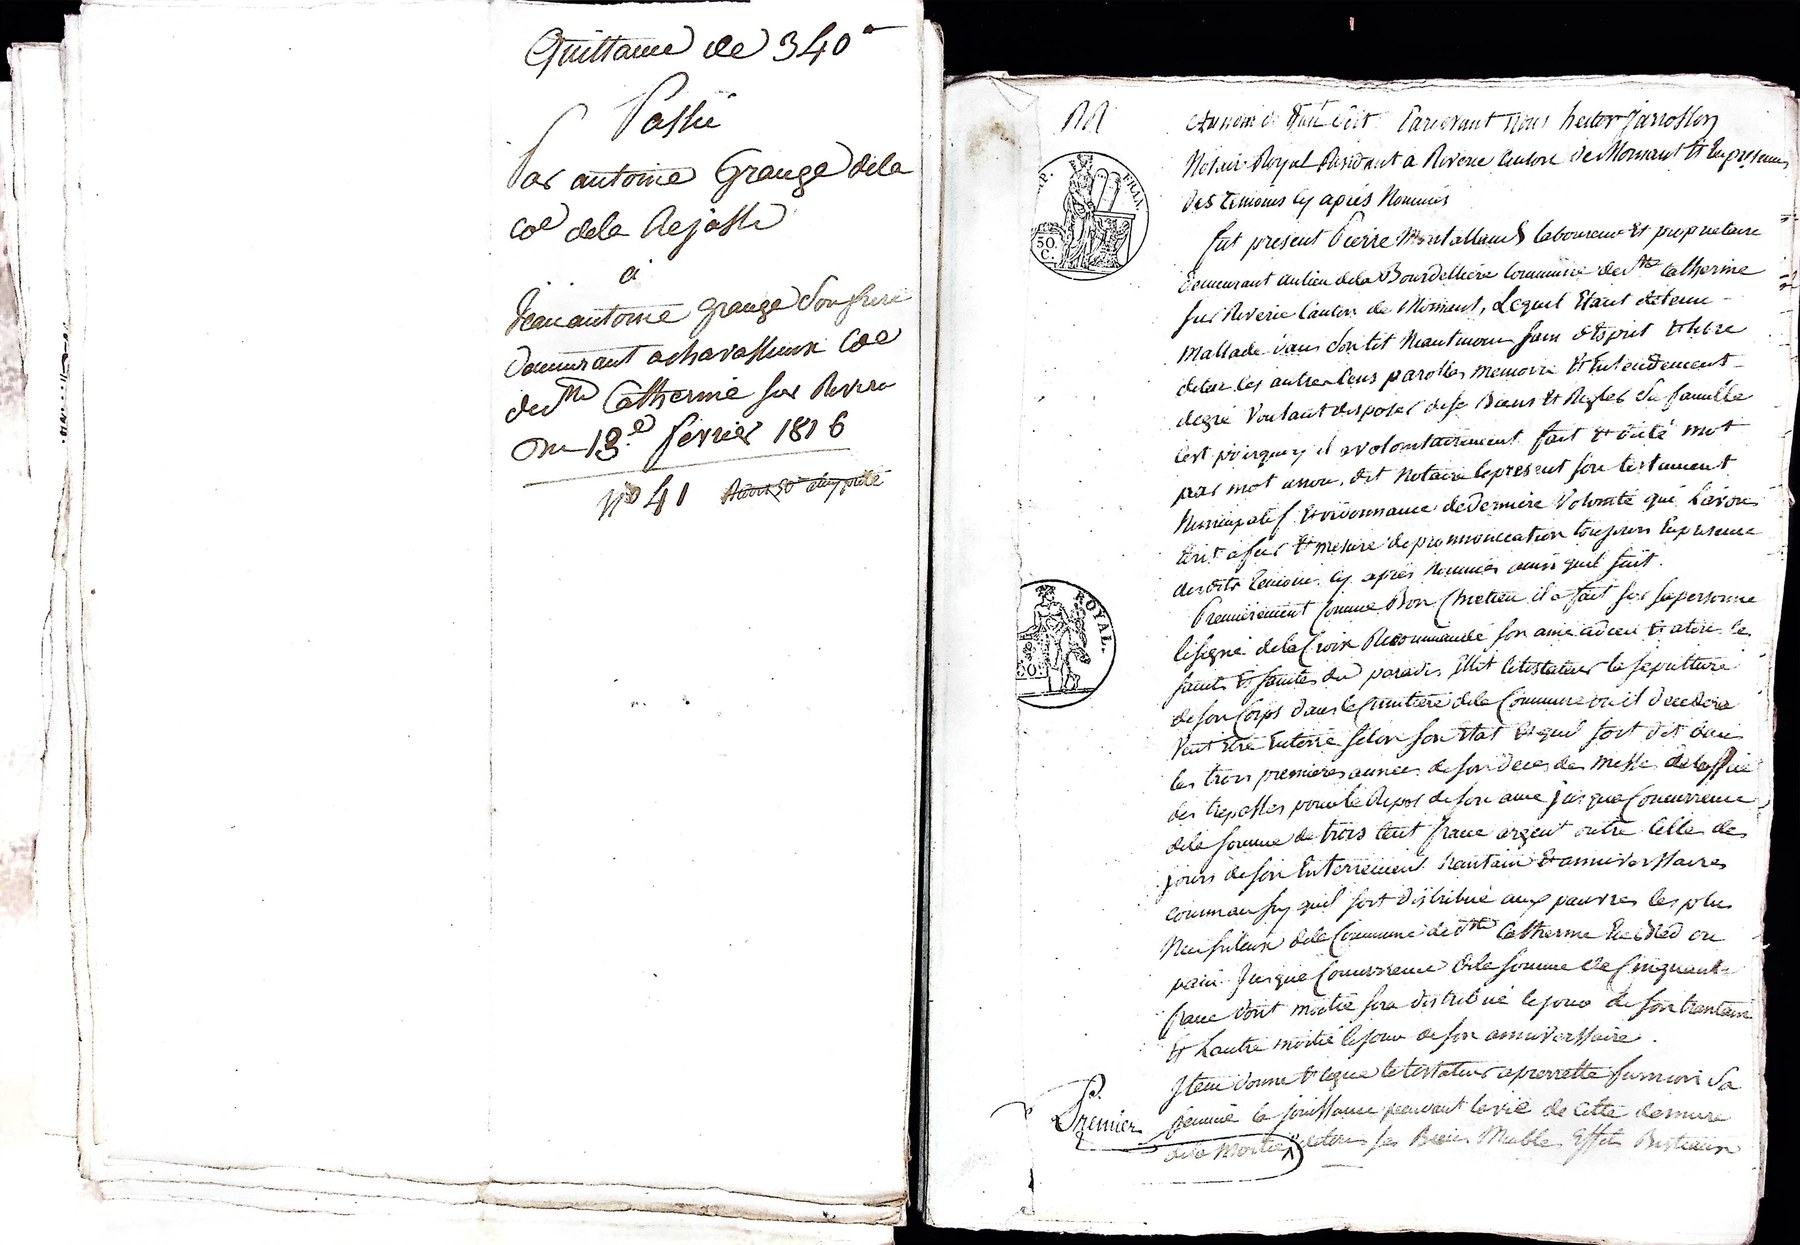 Quittance de 340 #
Passée
Par antoine Grange dela
Coe dela Rejasse
a
Jean antoine grange Son frere
Demeurant a chavassieux Coe
de Ste Catherine sur Riverie
Du 13e fevrier 1816
No 41
RR
Pardevant Nous hector Jarrosson
Notaire Royal Residant a Riverie Canton de Mornant Et En presence
des temoins cy aprés Nommés
fut present Pierre Montalland laboureur Et proprietaire
Demeurant au lieu dela Bourdelliere Commune de Ste Catherine
sur Riverie Canton de Mornant, Lequel Etant detenu
Mallade dans Son lit Neantmoins sain d'Esprit
de tous les autres sens parolles memoire Et Entendement
degré Voulant disposer de ses Biens Et Regler Sa famille
C'est pourquoy il a volontairement fait Et dicté mot
par mot anou. dit Notaire le present son testament
Nuncupatif Et ordonnance de Derniere Volonté que L'avons
Ecrit a fur Et mesure de prononnciation toujours En presence
desdits temoins cy aprés Nommés ainsi quil suit.
Premierement Comme Bon Chretien il a fait sur sa personne
le signe dela Croix Recommandé son ame a dieu Et a tous les
saints Et saintes du paradis Elit le testateur la sepulture
de son Corps dans le Cimitiere dela Commune ou il decedera
Veut Etre Enterré selon son Etat Et quil soit dit dans
les trois premieres années de son deces des messes
des trepassés pour le Repos de son ame jusque Concurrence
dela somme de trois Cent franc argent outre Celles des
jours de son Enterrement trantain Et anniverssaires
comm'aussy quil soit distribué aux pauvres les plus
Necessiteux dela Commune de Ste Catherine En Bled ou
pain Jusque Concurrence dela somme de Cinquante
franc dont moitié sera distribué le jour de son trantain
Et L'autre moitié le jour de son anniverssaire.
Item donne Et legue le testateur a pierrette sa
femme la jouissance pendant la vie de Cette derniere
Premier
dela moitié de tous ses Biens Meubles Effets Bestiaux
P. FRAN.
50.
C.
ROYAL.
50.